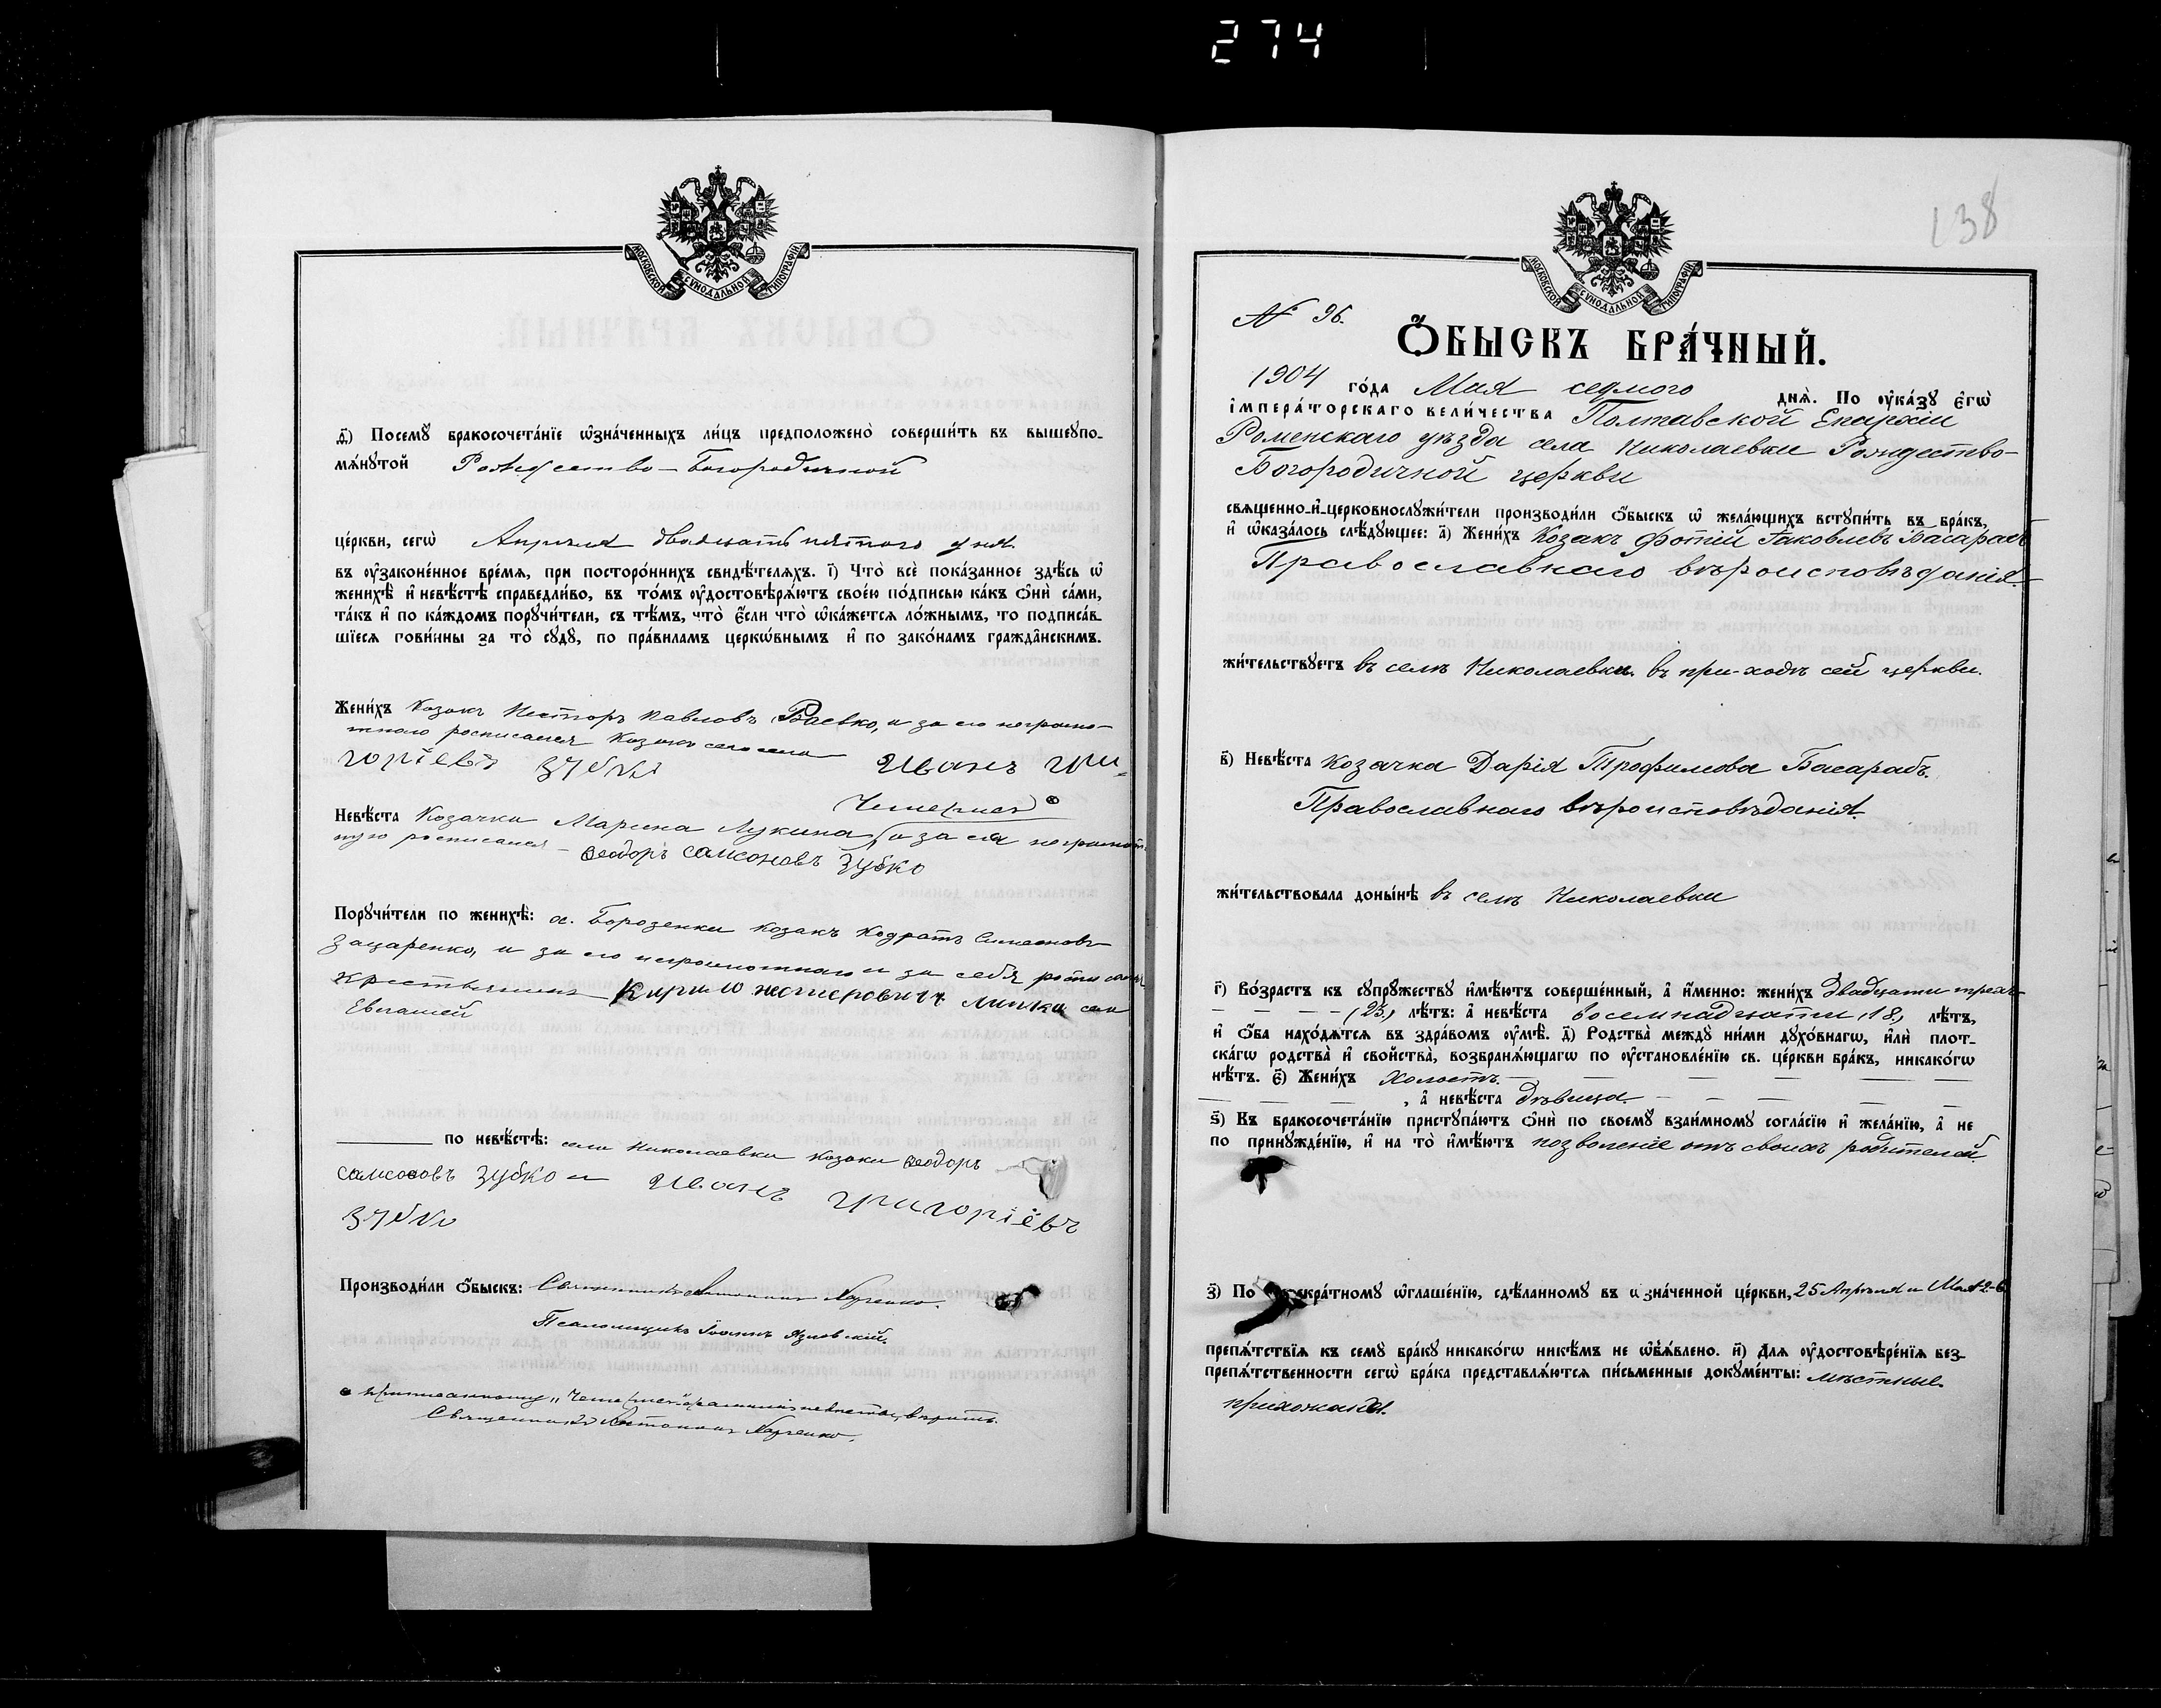 274
МОСКОВСКОЙ СУНОДАЛЬНОЙ ТИПОГРАФІИ
Ѳ҃) Посемꙋ̀ бракосочета́нїе ѡ҆зна́ченныхъ ли́цъ предположено̀ соверши́ть въ вышеꙋпо-
мѧ́нꙋтой Рождество-Богородичной
це́ркви, сегѡ̀ Апрѣля двадцать пятого дня
въ ᲂу҆законе́нное вре́мѧ, при посторо́ннихъ свидѣ́телѧхъ. і҃) Что̀ всѐ пока́занное здѣ́сь ѡ҆
женихѣ̀ и҆ невѣ́стѣ справедли́во, въ то́мъ ᲂу҆достовѣрѧ́ютъ свое́ю по́дписью ка́къ ѻ҆нѝ са́ми,
та́къ и҆ по ка́ждомъ порꙋчи́тели, съ тѣ́мъ, что̀ є҆́сли что̀ ѡ҆ка́жетсѧ ло́жнымъ, то подписа́в-
шїесѧ пови́нны за то̀ сꙋдꙋ̀, по пра́виламъ церко́внымъ и҆ по зако́намъ гражда́нскимъ.
Жени́хъ Козакъ Несторъ Павловъ Баевко, и за его неграмо-
тного росписался Козакъ сего села Иванъ Гри-
горіевъ Зубко
Невѣ́ста Козачка Марина Лукина и за ея неграмот-
ную росписался - Ѳеодоръ Самсоновъ Зубко
Порꙋчи́тели по женихѣ̀: х. Борозенки козакъ Кодратъ Симеоновъ
Зацаренко, и за его неграмотнаго и за себя росписался
крестьянинъ Кирило Липка сел
по невѣ́стѣ: села Николаевки козаки Ѳеодоръ
Самсоновъ Зубко и Иванъ Григоріевъ
Зубко
Производи́ли ѻ҆́быскъ: Священникъ Антонинъ
Псаломщикъ Іоаннъ
приписанному фамилія невѣсты, вѣрить.
Священникъ Антонинъ
138
МОСКОВСКОЙ СУНОДАЛЬНОЙ ТИПОГРАФІИ
№ 96.
Ѻ҆́БЫСКЪ БРА́ЧНЫЙ.
1904 го́да Мая седмого днѧ̀. По ᲂу҆ка́зꙋ є҆гѡ̀
і҆мпера́торскаго вели́чества Полтавской Епархіи
Роменскаго уѣзда села Николаевки Рождество-
Богородичной церкви
свѧщенно-и҆-церковнослꙋжи́тели производи́ли ѻ҆́быскъ ѡ҆ жела́ющихъ встꙋпи́ть въ бра́къ,
и҆ ѡ҆каза́лось слѣ́дꙋющее: а҃) Жени́хъ Козакъ Фотій Іаковлевъ Басарабъ
Православнаго вѣроисповѣданія.
жи́тельствꙋетъ въ селѣ Николаевки въ при-ходѣ сей церкви.
в҃) Невѣ́ста козачка Дарія Трофимова Басарабъ.
Православнаго вѣроисповѣданія.
жи́тельствовала доны́нѣ въ селѣ Николаевки
г҃) Во́зрастъ къ сꙋпрꙋ́жествꙋ и҆мѣ́ютъ соверше́нный, а҆ и҆́менно: жени́хъ Двадцати трехъ
(23) лѣ́тъ: а҆ невѣ́ста восемнадцати (18) лѣ́тъ,
и҆ ѻ҆́ба нахо́дѧтсѧ въ здра́вомъ ᲂу҆мѣ̀. д҃) Родства̀ междꙋ̀ ни́ми дꙋхо́внагѡ, и҆лѝ плот-
ска́гѡ родства̀ и҆ свойства̀, возбранѧ́ющагѡ по ᲂу҆становле́нїю св. це́ркви бра́къ, никако́гѡ
нѣ́тъ. є҃) Жени́хъ Холостъ.
, а҆ невѣ́ста дѣвица.
ѕ҃) Къ бракосочета́нїю пристꙋпа́ютъ ѻ҆нѝ по своемꙋ̀ взаи́мномꙋ согла́сїю и҆ жела́нїю, а҆ не
по принꙋжде́нїю, и҆ на то̀ и҆мѣ́ютъ позволеніе отъ своихъ родителей.
з҃) По кра́тномꙋ ѡ҆глаше́нїю, сдѣ́ланномꙋ въ ѡзна́ченной це́ркви, 25 Апрѣля и Мая 2-6
препѧ́тствїѧ къ семꙋ̀ бра́кꙋ никако́гѡ никѣ́мъ не ѡ҆б̾ѧ́влено. и҃) Длѧ ᲂу҆достовѣре́нїѧ без-
препѧ́тственности сегѡ̀ бра́ка представлѧ́ютсѧ пи́сьменные докꙋме́нты: мѣстные.
прихожане.